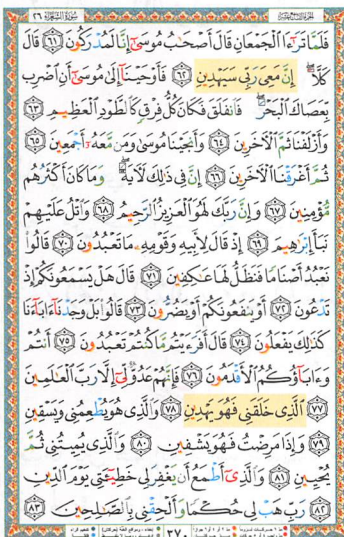 سورة الشعراء ٢٦
فَلَمَّا تَرَٰٓءَا ٱلْجَمْعَانِ قَالَ أَصْحَٰبُ مُوسَىٰٓ إِنَّا لَمُدْرَكُونَ ٦١ قَالَ
كَلَّآ ۖ إِنَّ مَعِىَ رَبِّى سَيَهْدِينِ ٦٢ فَأَوْحَيْنَآ إِلَىٰ مُوسَىٰٓ أَنِ ٱضْرِب
بِّعَصَاكَ ٱلْبَحْرَ ۖ فَٱنفَلَقَ فَكَانَ كُلُّ فِرْقٍ كَٱلطَّوْدِ ٱلْعَظِيمِ ٦٣
وَأَزْلَفْنَا ثَمَّ ٱلْءَاخَرِينَ ٦٤ وَأَنجَيْنَا مُوسَىٰ وَمَن مَّعَهُۥٓ أَجْمَعِينَ ٦٥
ثُمَّ أَغْرَقْنَا ٱلْءَاخَرِينَ ٦٦ إِنَّ فِى ذَٰلِكَ لَءَايَةً ۖ وَمَا كَانَ أَكْثَرُهُم
مُّؤْمِنِينَ ٦٧ وَإِنَّ رَبَّكَ لَهُوَ ٱلْعَزِيزُ ٱلرَّحِيمُ ٦٨ وَٱتْلُ عَلَيْهِمْ
نَبَأَ إِبْرَٰهِيمَ ٦٩ إِذْ قَالَ لِأَبِيهِ وَقَوْمِهِۦ مَا تَعْبُدُونَ ٧٠ قَالُوا۟
نَعْبُدُ أَصْنَامًا فَنَظَلُّ لَهَا عَٰكِفِينَ ٧١ قَالَ هَلْ يَسْمَعُونَكُمْ إِذْ
تَدْعُونَ ٧٢ أَوْ يَنفَعُونَكُمْ أَوْ يَضُرُّونَ ٧٣ قَالُوا۟ بَلْ وَجَدْنَآ ءَابَآءَنَا
كَذَٰلِكَ يَفْعَلُونَ ٧٤ قَالَ أَفَرَءَيْتُم مَّا كُنتُمْ تَعْبُدُونَ ٧٥ أَنتُمْ
وَءَابَآؤُكُمُ ٱلْأَقْدَمُونَ ٧٦ فَإِنَّهُمْ عَدُوٌّ لِّىٓ إِلَّا رَبَّ ٱلْعَٰلَمِينَ
٧٧ ٱلَّذِى خَلَقَنِى فَهُوَ يَهْدِينِ ٧٨ وَٱلَّذِى هُوَ يُطْعِمُنِى وَيَسْقِينِ
٧٩ وَإِذَا مَرِضْتُ فَهُوَ يَشْفِينِ ٨٠ وَٱلَّذِى يُمِيتُنِى ثُمَّ
يُحْيِينِ ٨١ وَٱلَّذِىٓ أَطْمَعُ أَن يَغْفِرَ لِى خَطِيٓـَٔتِى يَوْمَ ٱلدِّينِ
٨٢ رَبِّ هَبْ لِى حُكْمًا وَأَلْحِقْنِى بِٱلصَّٰلِحِينَ ٨٣
٣٧٠